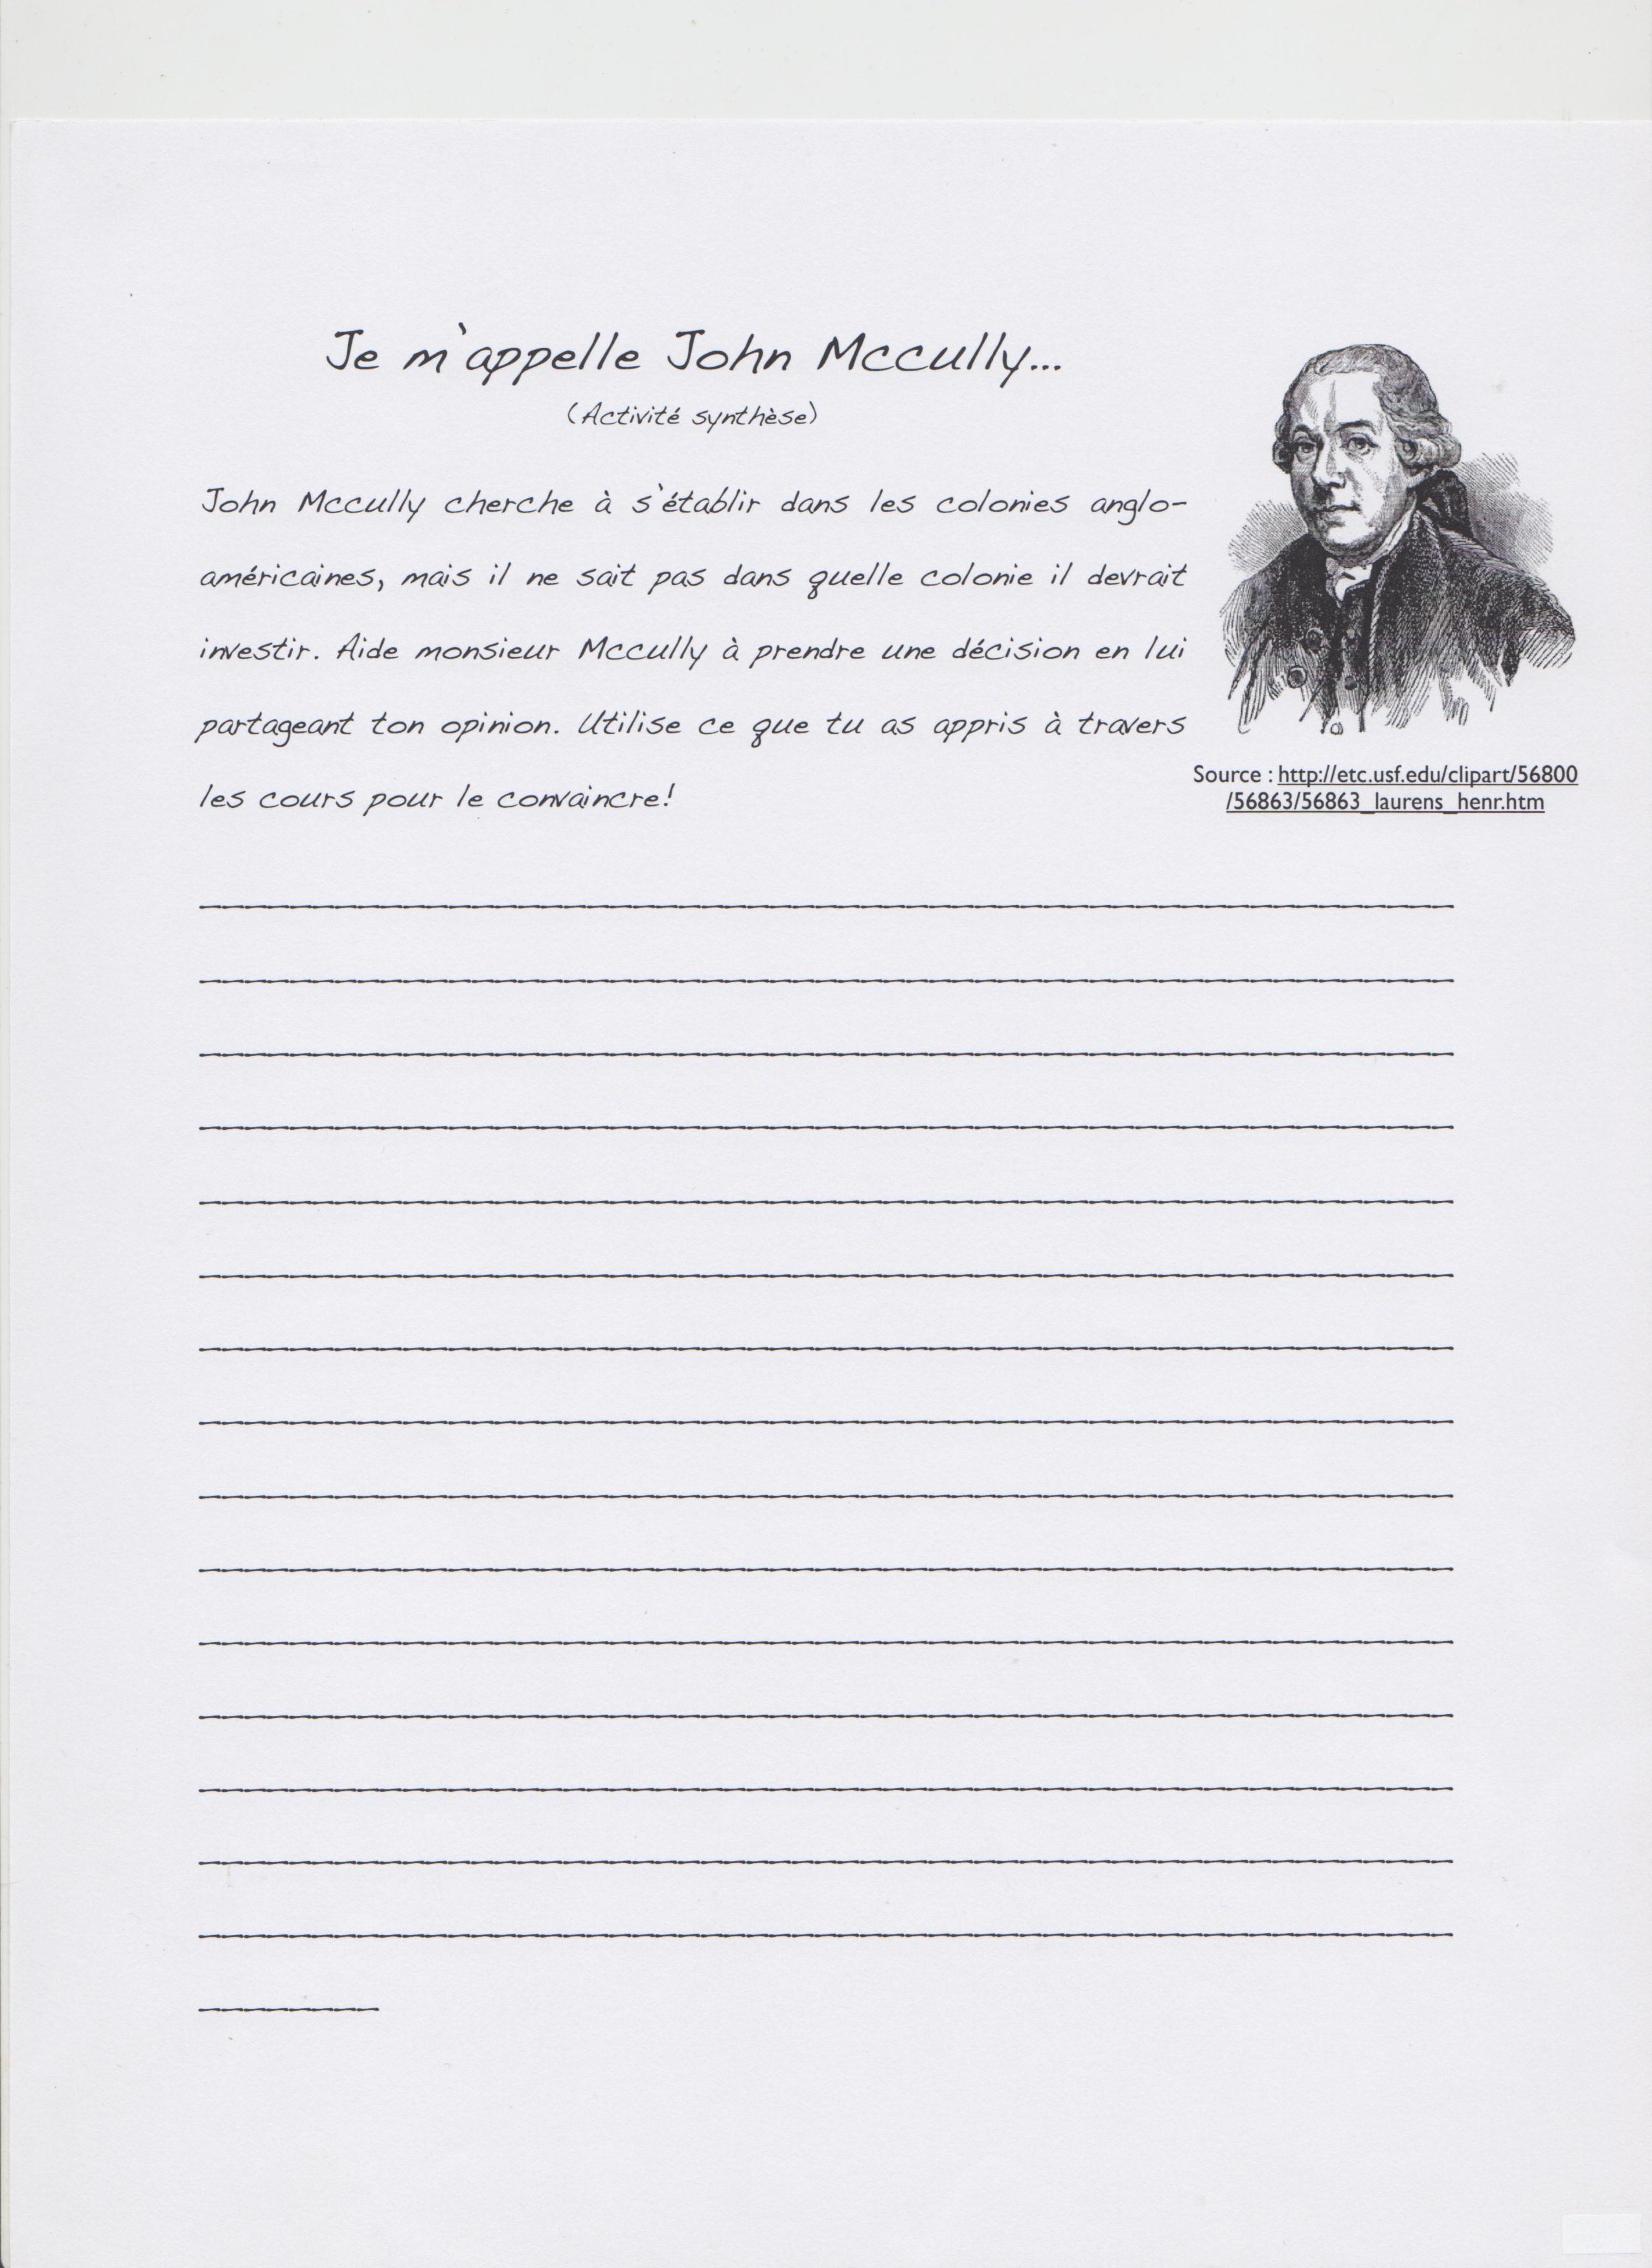 Je m'appelle John Mccully...
(Activité synthèse)
John Mccully cherche à s'établir dans les colonies anglo-
américaines, mais il ne sait pas dans quelle colonie il devrait
investir. Aide monsieur Mccully à prendre une décision en lui
partageant ton opinion. Utilise ce que tu as appris à travers
les cours pour le convaincre!
Source : http://etc.usf.edu/clipart/56800
/56863/56863_laurens_henr.htm